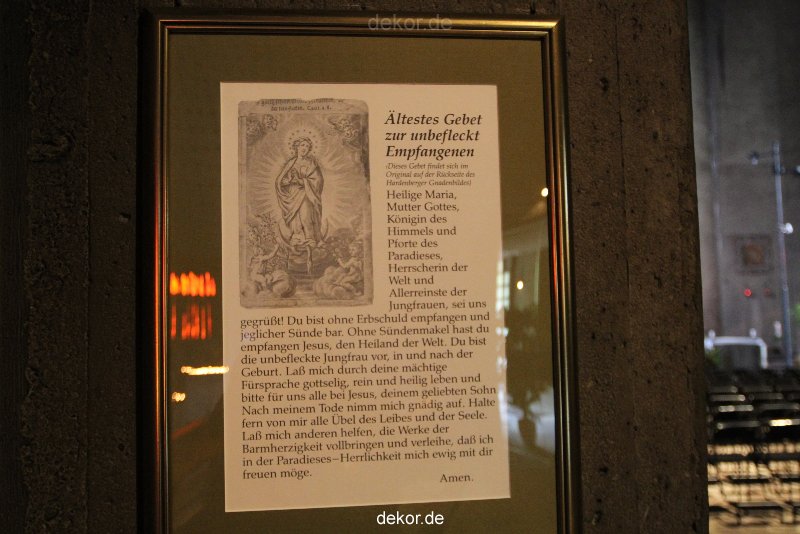 dekor.de
Ältestes Gebet
zur unbefleckt
Empfangenen
(Dieses Gebet findet sich im
Original auf der Rückseite des
Hardenberger Gnadenbildes)
Heilige Maria,
Mutter Gottes,
Königin des
Himmels und
Pforte des
Paradieses,
Herrscherin der
Welt und
Allerreinste der
Jungfrauen, sei uns
gegrüßt! Du bist ohne Erbschuld empfangen und
jeglicher Sünde bar. Ohne Sündenmakel hast du
empfangen Jesus, den Heiland der Welt. Du bist
die unbefleckte Jungfrau vor, in und nach der
Geburt. Laß mich durch deine mächtige
Fürsprache gottselig, rein und heilig leben und
bitte für uns alle bei Jesus, deinem geliebten Sohn
Nach meinem Tode nimm mich gnädig auf. Halte
fern von mir alle Übel des Leibes und der Seele.
Laß mich anderen helfen, die Werke der
Barmherzigkeit vollbringen und verleihe, daß ich
in der Paradieses–Herrlichkeit mich ewig mit dir
freuen möge.
Amen.
dekor.de